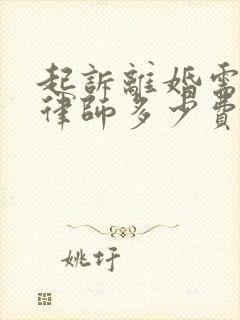 起訴離婚需
律師多少費
姚圩